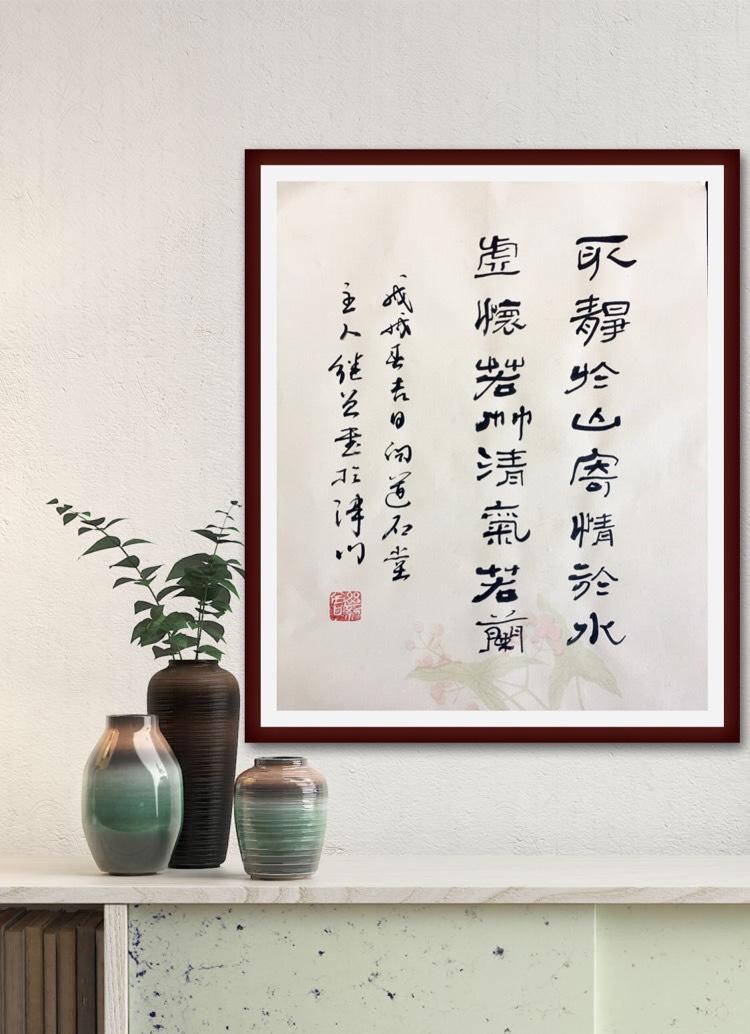 取靜於山寄情於水
虛懷若竹清氣若蘭
戊戌春吉日问道石堂
主人继書於津门